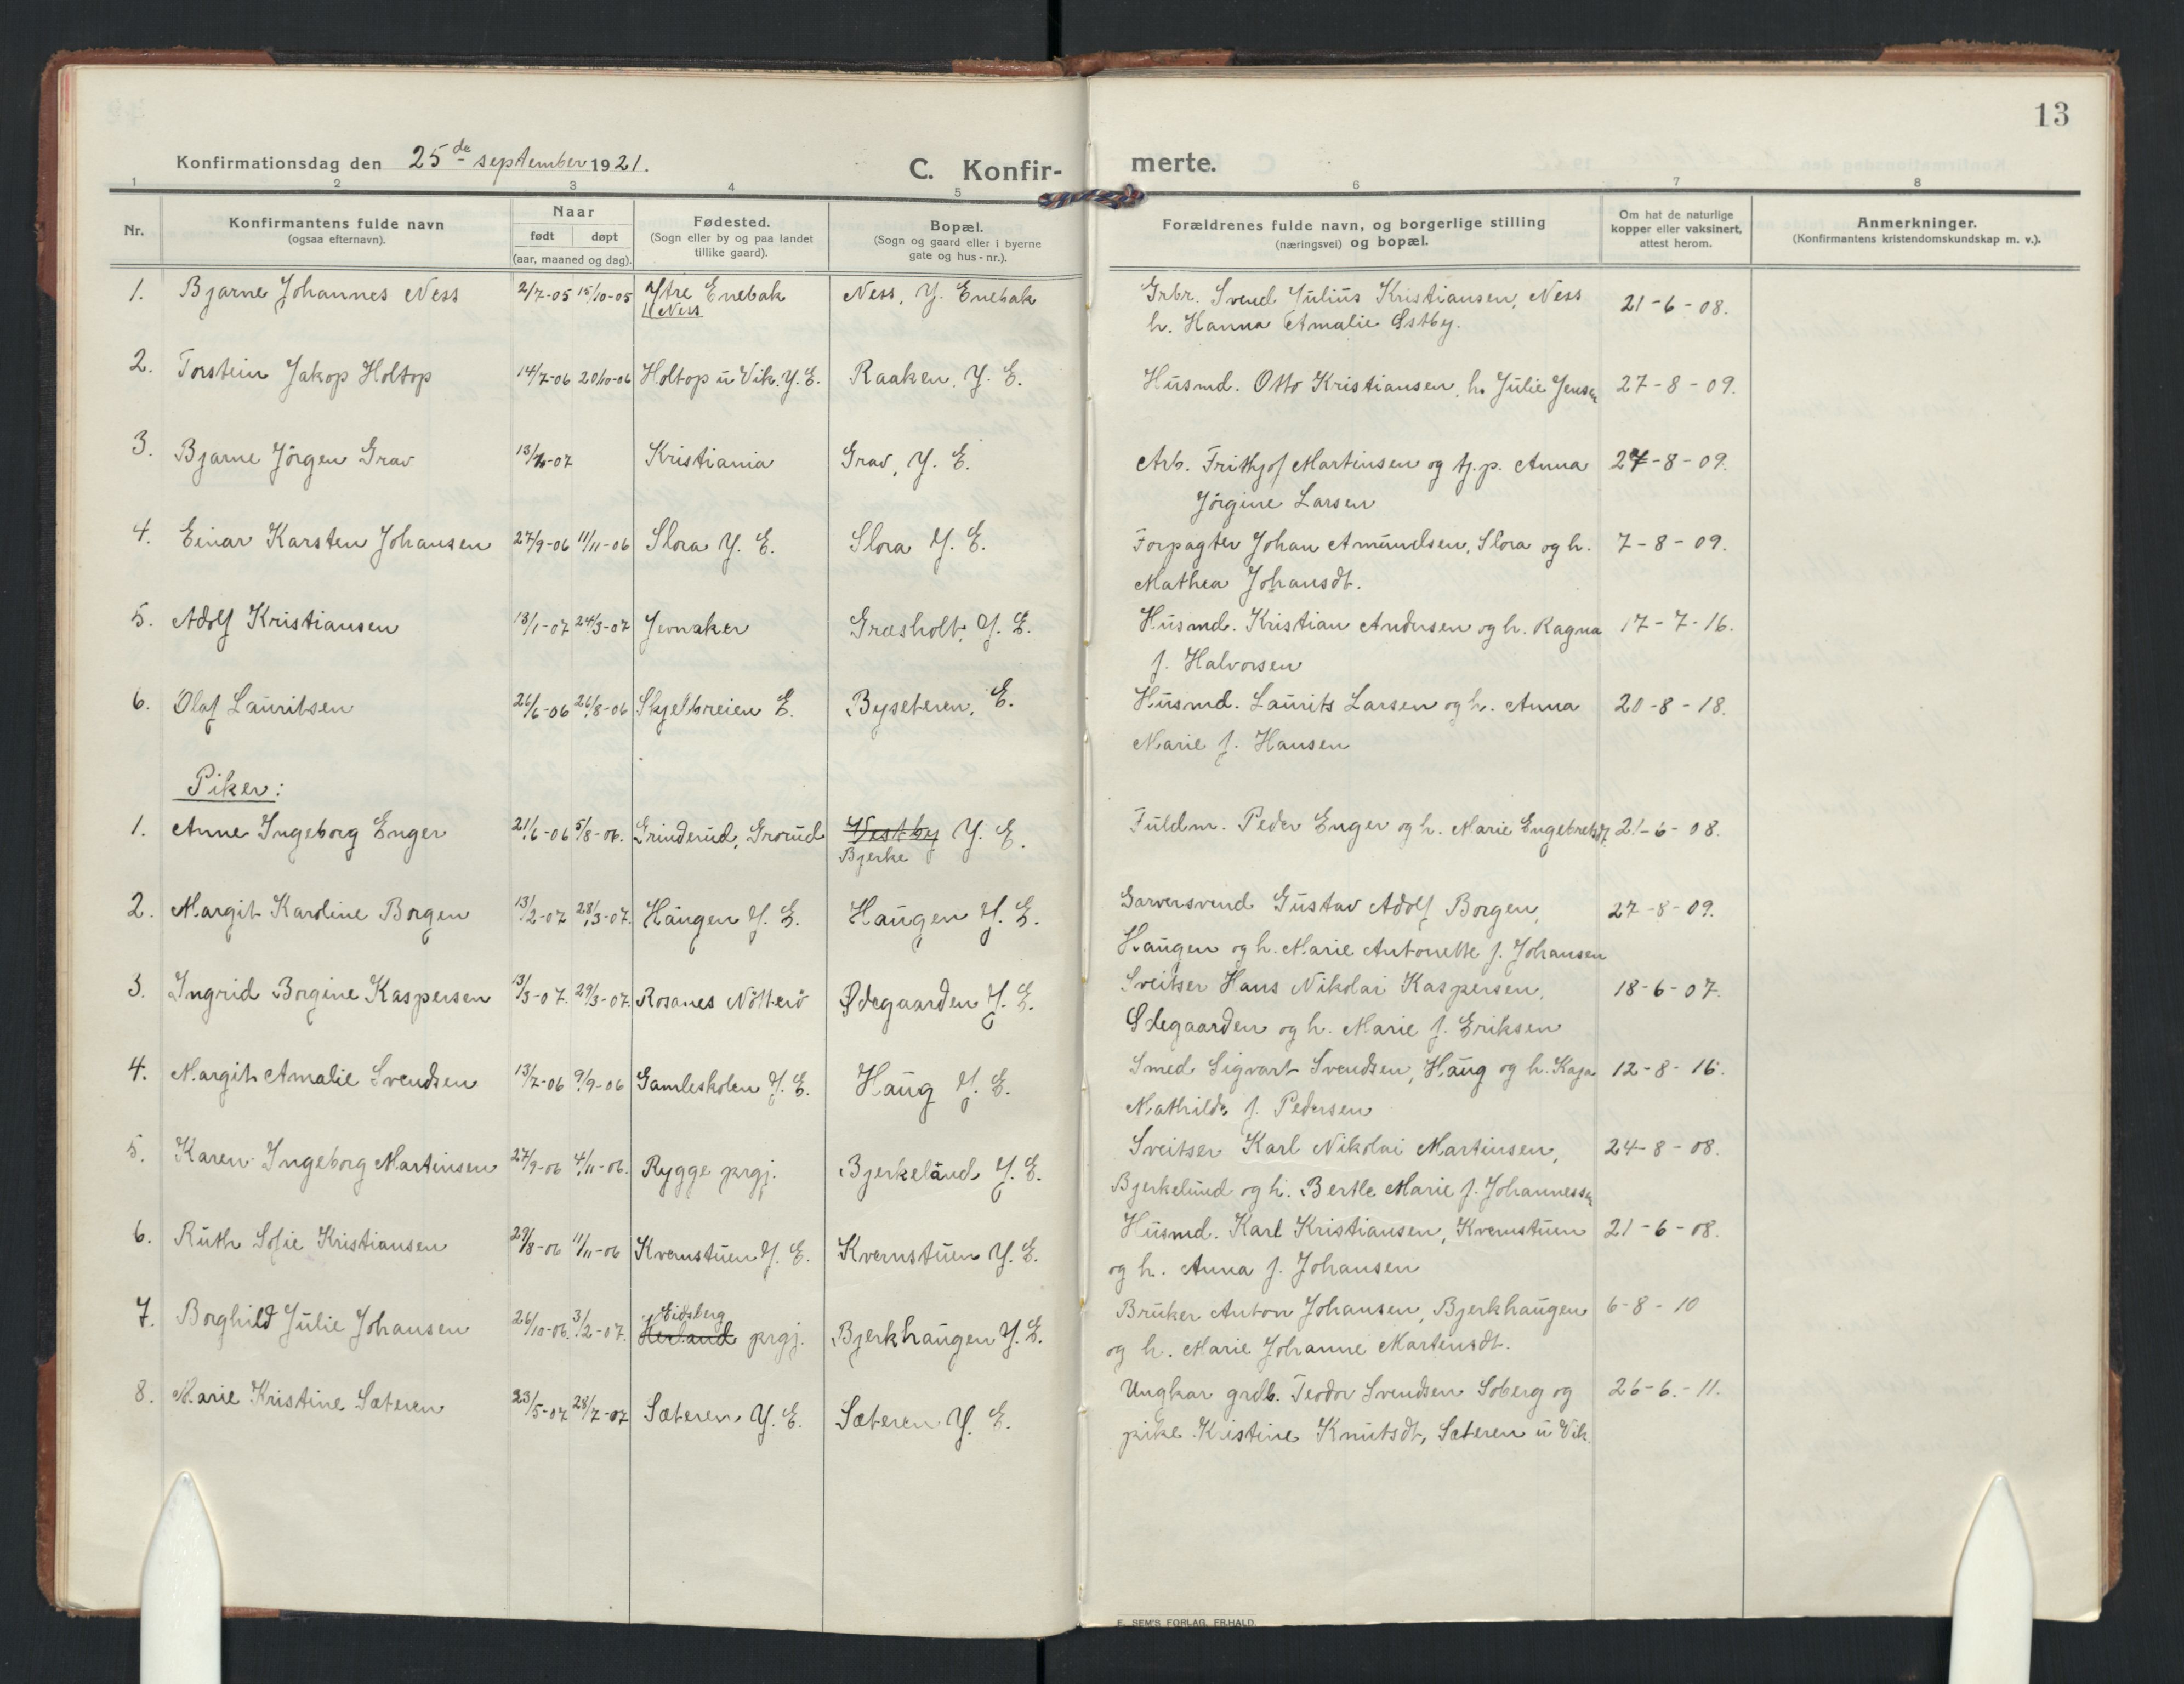 13
Konfirmationsdag den 25de september 1921.
C. Konfir-
merte.
1 2 3 4 5 6 7 8
Nr.
Konfirmantens fulde navn
(ogsaa efternavn).
Naar
født døpt
(aar, maaned og dag).
Fødested.
(Sogn eller by og paa landet
tillike gaard).
Bopæl.
(Sogn og gaard eller i byerne
gate og hus-nr.).
Forældrenes fulde navn, og borgerlige stilling
(næringsvei) og bopæl.
Om hat de naturlige
kopper eller vaksinert,
attest herom.
Anmerkninger.
(Konfirmantens kristendomskundskap m. v.).
1. Bjarne Johannes Ness 2/7-05 15/10-05 Ytre Enebak Ness, Y. Enebak Grbr. Svend Julius Kristiansen, Ness 21-6-08.
Ness h. Hanna Amalie Østby.
2. Torstein Jakop Holtop 14/7-06 20/10-06 Holtop u Vik. Y. E. Raaken, Y. E. Husmd. Otto Kristiansen, h. Julie Jensen 27-8-09.
3. Bjarne Jörgen Grav 13/7-07 Kristiania Grav, Y. E. Arb. Frithjof Martinsen og tj. p. Anna 27-8-09.
Jörgine Larsen
4. Einar Karsten Johansen 27/9-06 11/11-06 Slora Y. E. Slora Y. E. Forpagter Johan Amundsen, Slora og h. 7-8-09.
Mathea Johansdt.
5. Adolf Kristiansen 13/1-07 24/3-07 Jevnaker Græsholt, Y. E. Husmd. Kristian Andersen og h. Ragna 17-7-16.
f. Halvorsen
6. Olaf Lauritsen 26/6-06 26/8-06 Skjelbreien E. Byseteren, E. Husmd. Laurits Larsen og h. Anna 20-8-18.
Marie f. Hansen
Piker:
1. Anne Ingeborg Enger 21/6-06 5/8-06. Grinderud, Grorud Vestby Y. E. Fuldm. Peder Enger og h. Marie Engebretsdt. 21-6-08.
Bjerke
2. Margit Karoline Borgen 13/2-07 28/3-07. Haugen Y. E. Haugen Y. E. Garversvend Gustav Adolf Borgen, 27-8-09.
Haugen og h. Marie Antonette f. Johansen
3. Ingrid Borgine Kaspersen 13/3-07. 29/3-07. Rosanes Nötterö Ødegaarden Y. E. Sveitser Hans Nikolai Kaspersen, 18-6-07.
Ødegaarden og h. Marie f. Eriksen
4. Margit Amalie Svendsen 13/7-06 9/9-06 Gamleskolen Y. E. Haug Y. E. Smed Sigvart Svendsen, Haug og h. Kaja 12-8-16.
Mathilde f. Pedersen
5. Karen Ingeborg Martinsen 27/9-06 4/11-06. Rygge prgj. Bjerkelund Y. E. Sveitser Karl Nikolai Martinsen, 24-8-08.
Bjerkelund og h. Bertle Marie f. Johannessen
6. Ruth Sofie Kristiansen 29/8-06 11/11-06 Kvernstuen Y. E. Kvernstuen Y. E. Husmd. Karl Kristiansen, Kvernstuen 21-6-08.
og h. Anna f. Johansen
Eidsberg
7. Borghild Julie Johansen 26/10-06. 3/2-07. Herland prgj. Bjerkhaugen Y. E. Bruker Anton Johansen, Bjerkhaugen 6-8-10
og h. Marie Johanne Martensdt.
8. Marie Kristine Sæteren 23/5-07 28/7-07 Sæteren, Y. E. Sæteren Y. E. Ungkar grdb. Teodor Svendsen Soberg og 26-6.-11.
pike Kristine Knutsdt, Sæteren u Vik.
E. SEM'S FORLAG, FR.HALD.